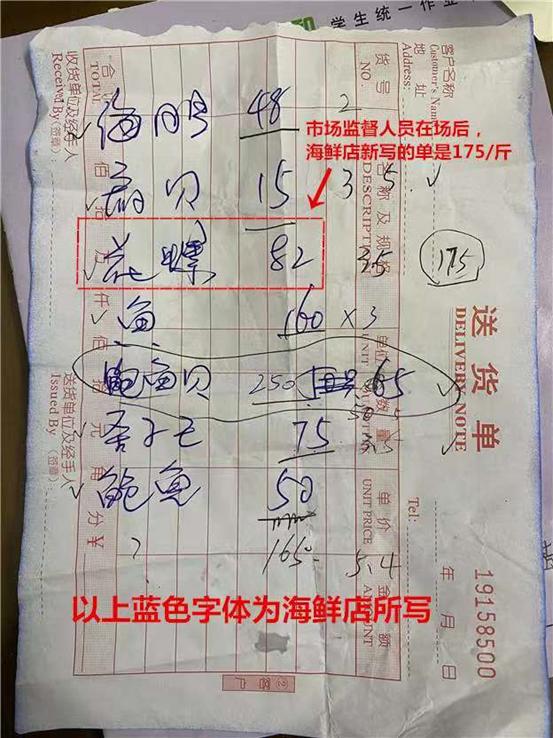 学生统一作业
市场监督人员在场后，
海鲜店新写的单是175/斤
48 2
贝 15 3 5
花螺 82 35
175
鱼 160 x3
鲍鱼贝 250 65
75
鲍鱼 50
165
5.4
以上蓝色字体为海鲜店所写
送货单
DELIVERY NOTE
19158500
年 月 日
Tel:
客户名称
Customer's Name
地址
货号
NO.
名称及规格
DESCRIPTION
单位
UNIT
数量
单价
UNIT PRICE
金额
AMOUNT
合计
TOTAL
佰 拾 万 仟 佰 拾 元 角 分 ¥
收货单位及经手人
Received By (签章):
送货单位及经手人
Issued By (签章):
②客户